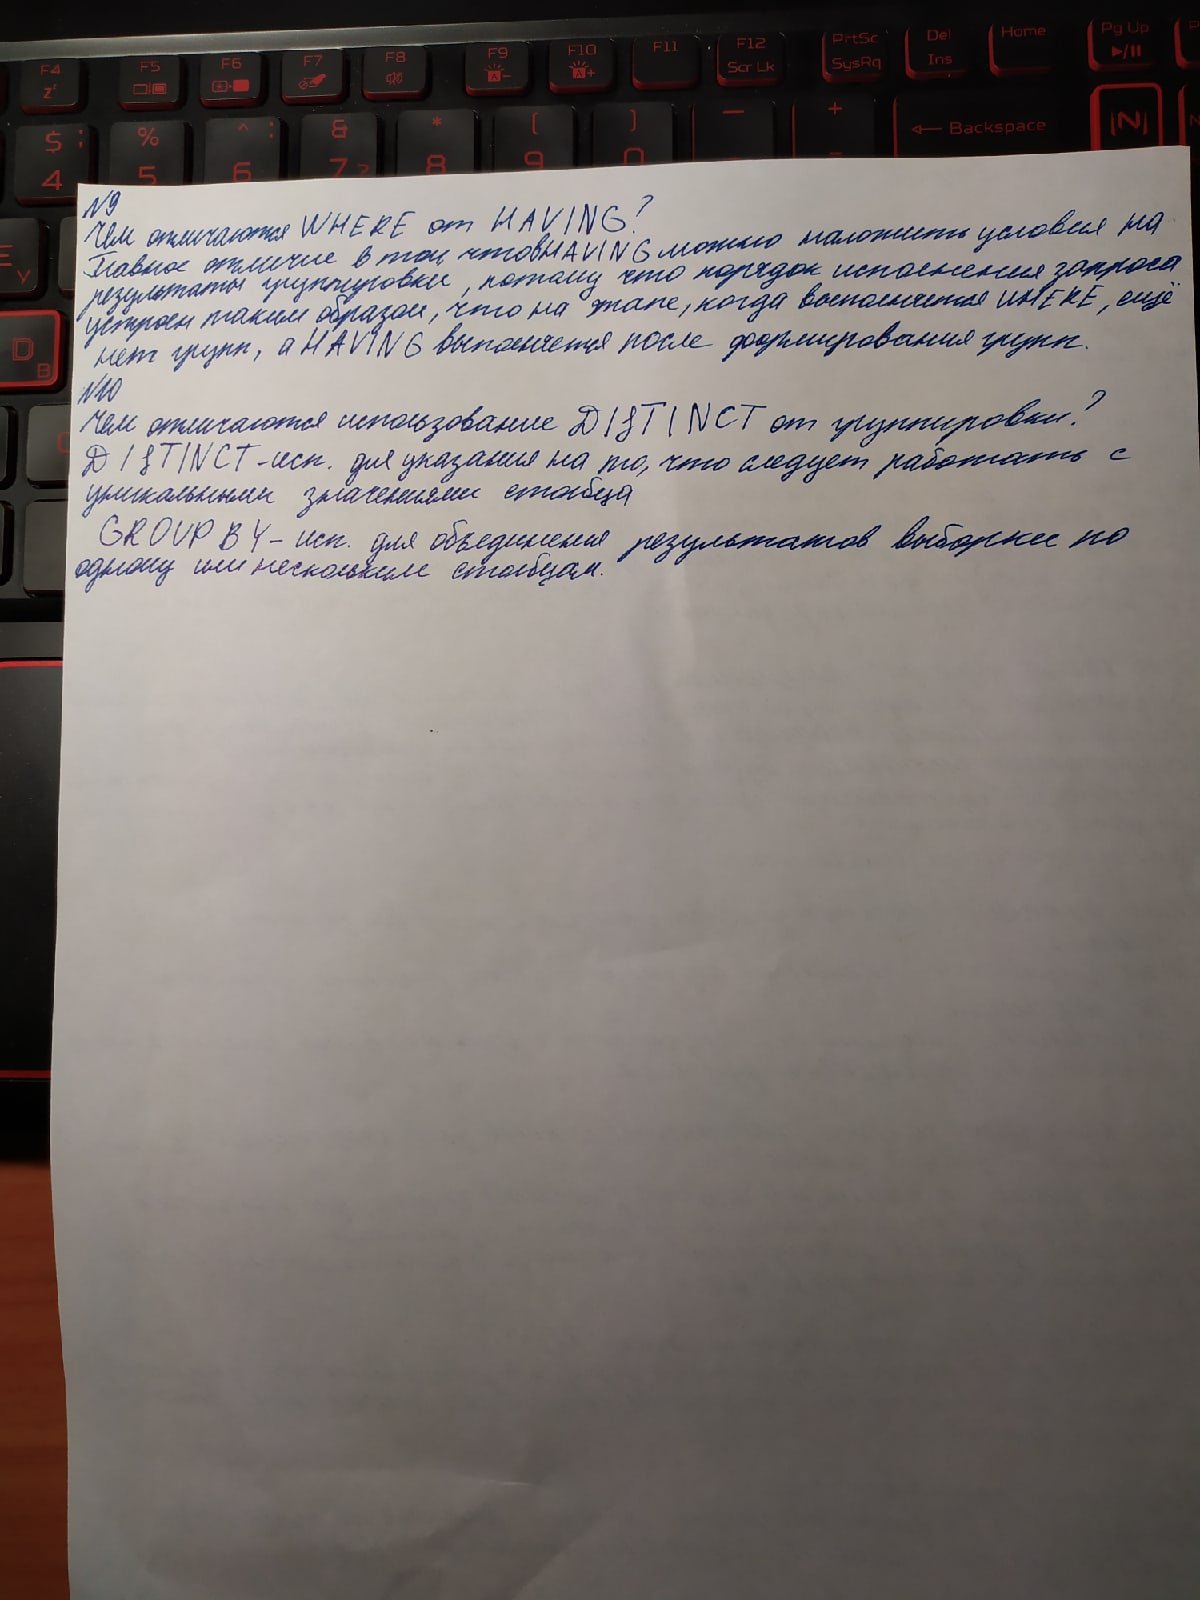 F4 F5 F6 F7 F8 F9 F10 F11 F12 PrtSc Del Home Pg Up
Scr Lk SysRq Ins
$ ; % ^ : & * ( ) — +
4 5 6 7 ? 8 9 0 - ← Backspace N
У
D
В
N9
Чем отличаются WHERE от HAVING?
Главное отличие в том, что в HAVING можно наложить условия на
результаты группировки, потому что порядок исполнения запроса
устроен таким образом, что на этапе, когда выполняется WHERE, ещё
нет групп, а HAVING выполняется после формирования групп.
N10
Чем отличаются использование DISTINCT от группировки?
DISTINCT - исп. для указания на то, что следует работать с
уникальными значениями столбца
GROUP BY - исп. для объединения результатов выборки по
одному или нескольким столбцам.